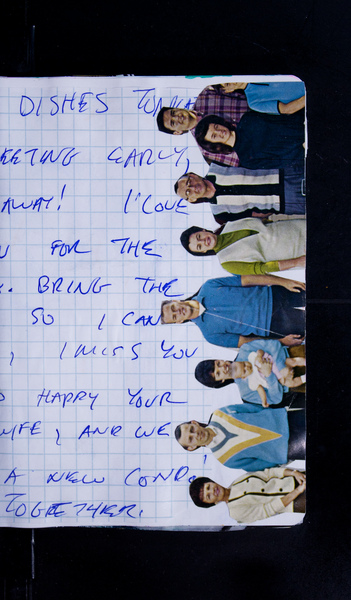 DISHES
EETING EARLY,
AWAY! I'LOVE
U FOR THE
. BRING THE
SO I CAN
, I MISS YOU
HAPPY YOUR
IFE, AND WE
A NEW COND.
TOGETHER.